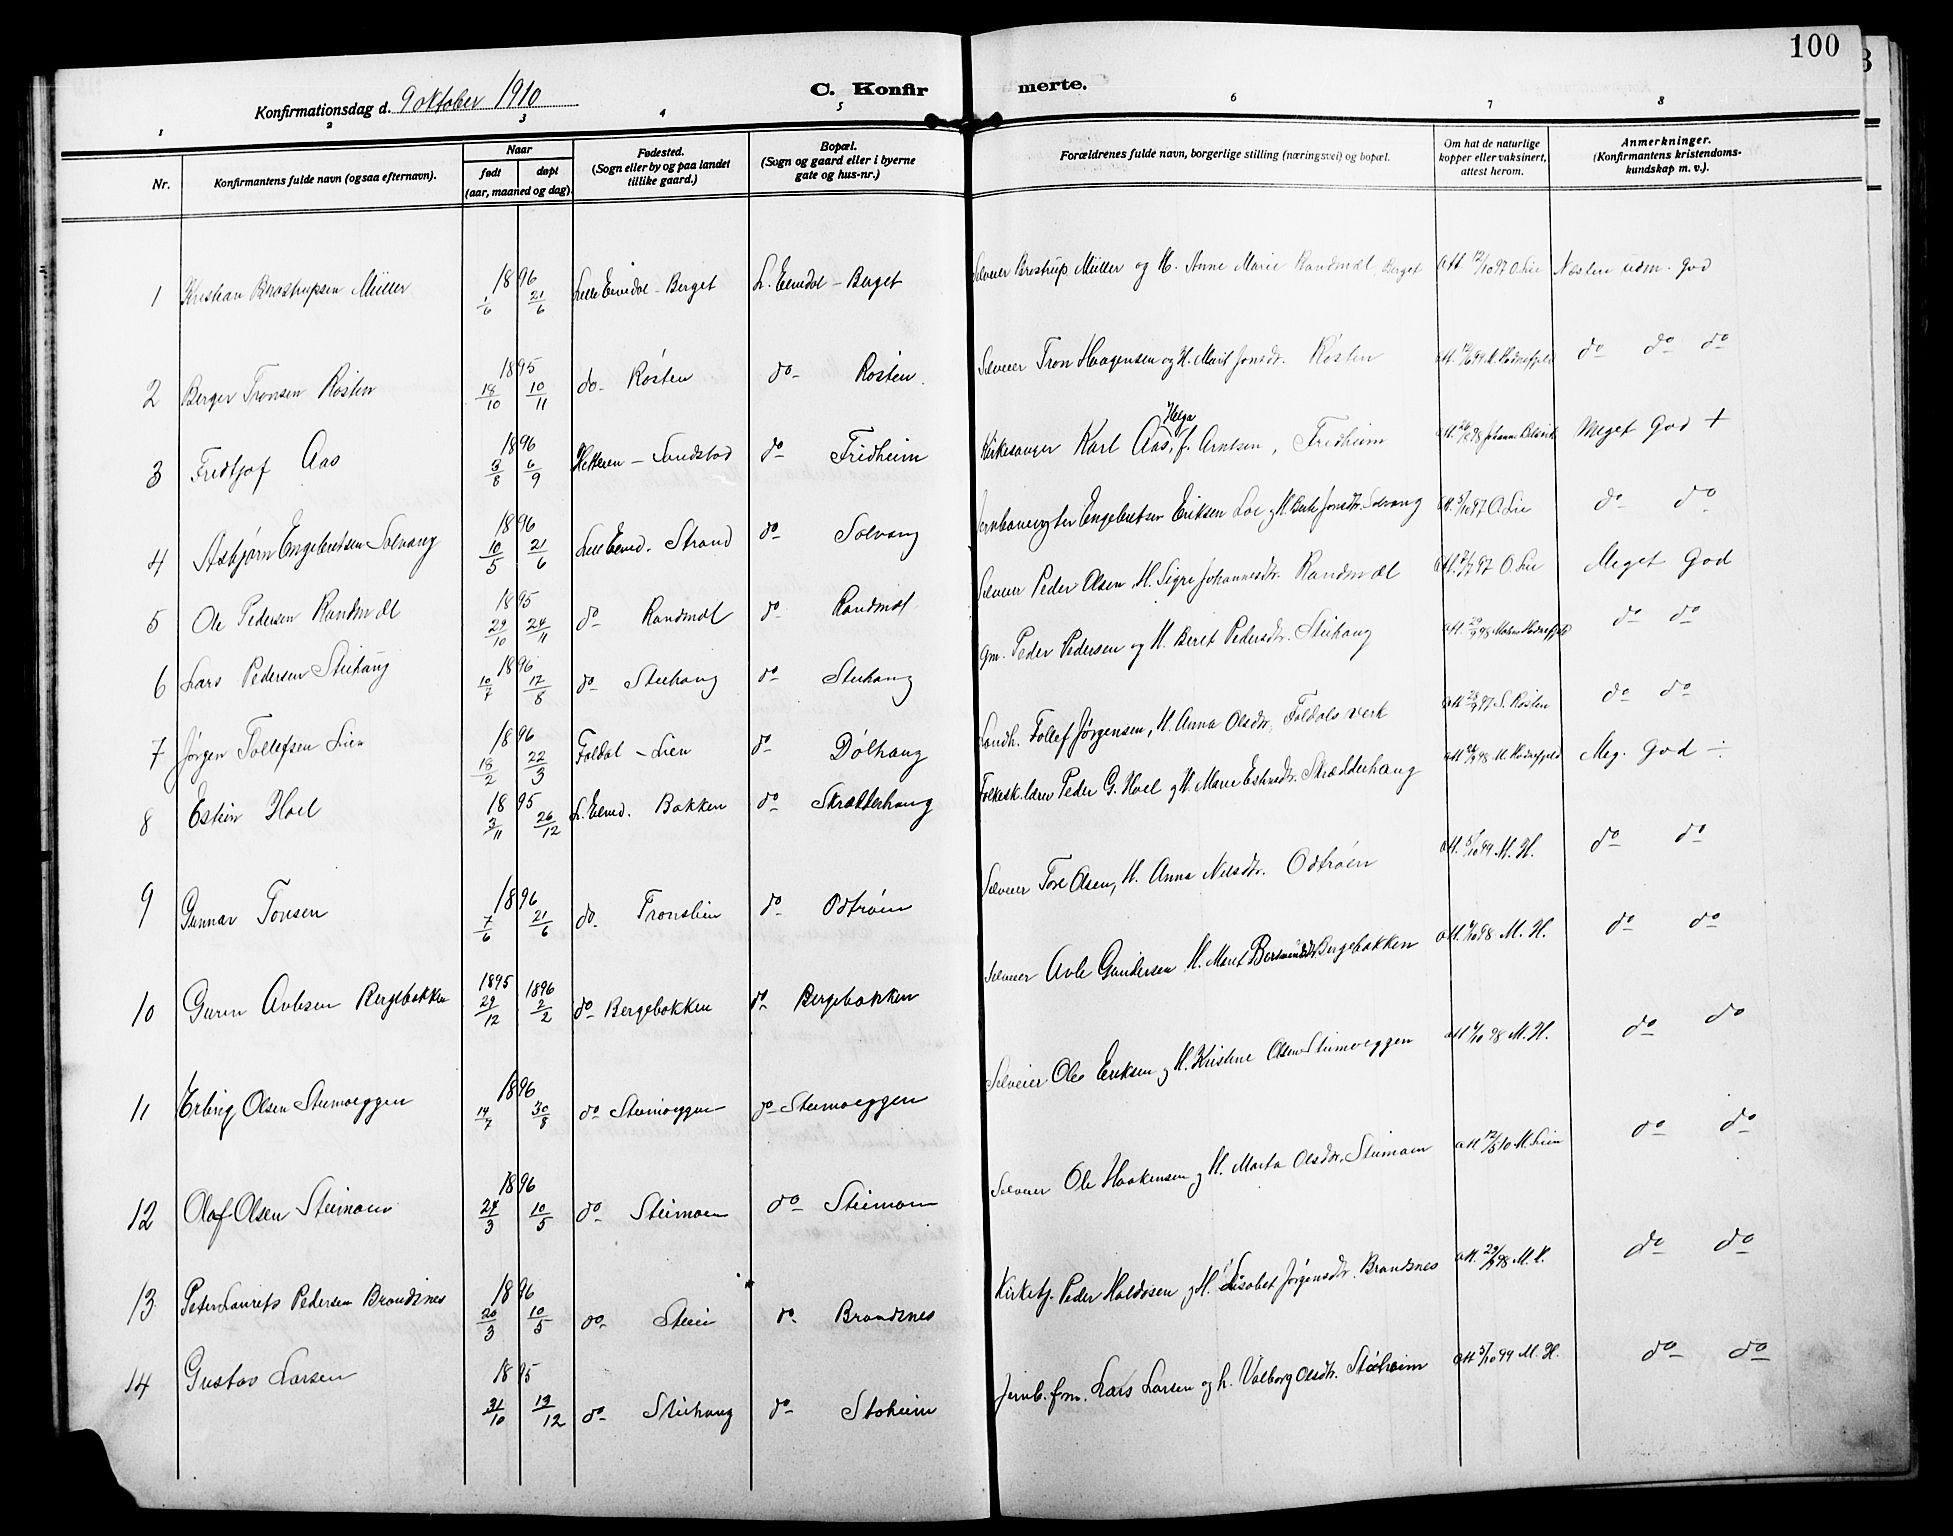 100
Konfirmationsdag d. 9 oktober 1910
C. Konfir merte.
1 2 3 4 5 6 7 8
Nr.
Konfirmantens fulde navn (ogsaa efternavn).
Naar
født døpt
(aar, maaned og dag).
Fødested.
(Sogn eller by og paa landet
tillike gaard.)
Bopæl.
(Sogn og gaard eller i byerne
gate og hus-nr.)
Forældrenes fulde navn, borgerlige stilling (næringsvei) og bopæl.
Om hat de naturlige
kopper eller vaksinert,
attest herom.
Anmerkninger.
(Konfirmantens kristendoms-
kundskap m. v.).
1 Kristian Brostrupsen Müller 1896 1/6 21/6 Lille Elvedal - Berget L. Elvedal - Berget Selveier Brostrup Müller og H. Anne Marie Randmæl, Berget att 12/10 97 O. Lie Næsten udm. god
2 Berger Tronsen Røsten 1895 18/10 10/11 do - Røsten do - Røsten. Selveier Tron Haagensen og H. Marit Jonsdr. Røsten do do do
3 Fredtjof Aas 1896 3/8 6/9 Hitteren - Sandstad do Fridheim Kirkesanger Karl Aas, Helga f. Arntsen, Fredheim Meget God +
4 Asbjørn Engebretsen Solvang 1896 10/5 21/6 Lille Elved. Strand do Solvang Jernbanevogter Engebretsen Eriksen Loe og H. Berte Jonsdr. Solvang att. 5/10 97 O. Lie do do
5 Ole Pedersen Randmæl 1895 29/10 24/11 do Randmæl do Randmæl Selveier Peder Olsen H. Sigre Johannesdr. Randmæl 97 O. Lie Meget God
6 Lars Pedersen Steihaug 1896 10/7 17/8 do Steihaug do Steihaug gm. Peder Pedersen og H. Beret Pedersdr. Steihaug do do
7 Jørgen Tollefsen Lien 1896 18/2 22/3 Foldal - Lien do Dølhaug Landh. Tollef Jørgensen, H. Anna Olsdr. Foldals verk 97 S. Røsten do do
8 Estein Hoel 1895 3/11 26/12 L. Elved. Bakken do Skrædderhaug Folkesk.lærer Peder G. Hoel og H. Marie Estensdr. Skrædderhaug Meg. God ÷
9 Gunnar Toresen 1896 7/6 21/6 do. Tronslien do Odtrøen Selveier Tore Olsen, H. Anna Nilsdr. Odtrøen att. 5/10 99 M. H. do do
10 Guren Avlesen Bergebakken 1895 29/12 1896 2/2 do Bergebakken do Bergebakken Selveier Avle Gundersen H. Maret Bersvendsdr. Bergebakken 98 M. H. do do
11 Erling Olsen Steimoeggen 1896 14/7 30/8 do Steimoeggen do Steimoeggen Selveier Ole Eriksen og H. Kristine Olsen Steimoeggen 98 M. H. do do
12 Olaf Olsen Steimoen 1896 29/3 10/5 do Steimoen do Steimoen Selveier Ole Haakensen og H. Marta Olsdr. Steimoen att 12/5 10 M. Lien do do
13 Peter Laurits Pedersen Brandsnes 1896 20/3 10/5 do Steien do Brandsnes Kirketj. Peder Haldosen og H. Lisabet Jørgensdr. Brandsnes do do
14 Gustav Larsen 1895 31/10 13/12 do Steihaug do Stoheim Jernb. fm. Lars Larsen og h. Valborg Olsdr. Stoheim att 5/10 99 M. H. do do